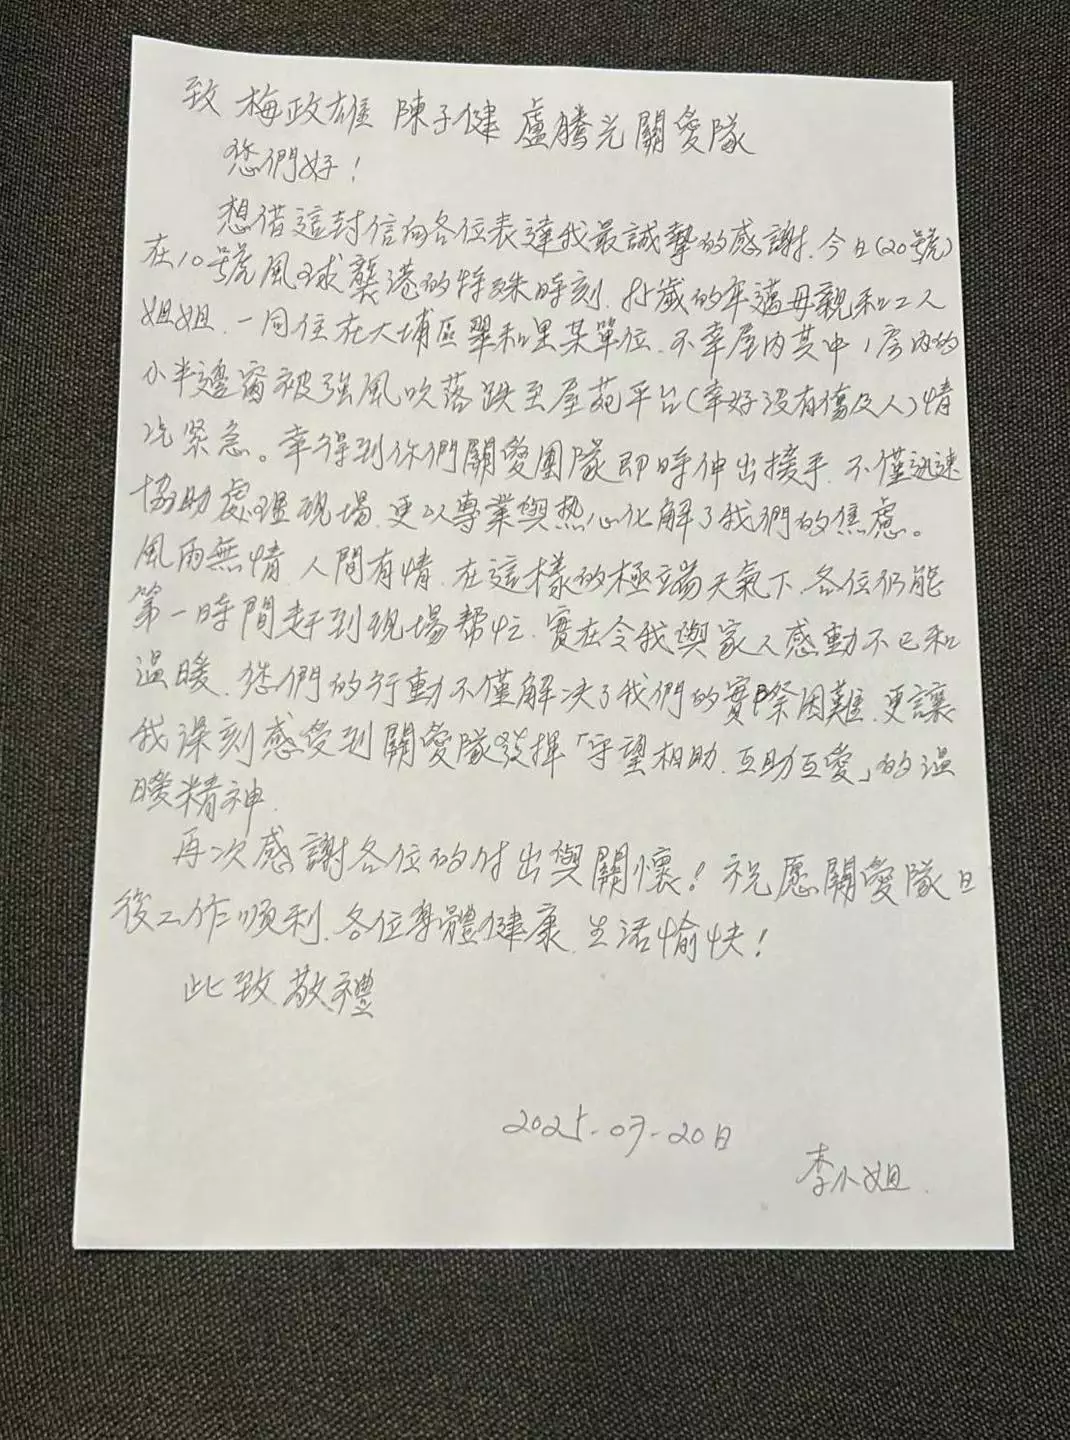 致 梅政雄 陳子健 盧騰光關愛隊
您們好！
想借這封信向各位表達我最誠摯的感謝，今日（20號）
在10號風球襲港的特殊時刻，歲的年邁母親和工人
姐姐，一同住在大埔區翠和里某單位，不幸屋內其中1房內的
小半邊窗被強風吹落跌至屋苑平台（幸好沒有傷及人）情
況緊急。幸得到你們關愛團隊即時伸出援手，不僅迅速
協助處理現場，更以專業與热心化解了我們的焦慮。
風雨無情，人間有情，在這樣的極端天氣下，各位仍能
第一時間趕到現場帮忙，實在令我與家人感動不已和
溫暖，您們的行動不僅解决了我們的實際困難，更讓
我深刻感受到關愛隊發揮「守望相助，互助互愛」的溫
暖精神，
再次感謝各位的付出與關懷！祝愿關愛隊日
後工作順利，各位身體健康，生活愉快！
此致敬禮
2025-07-20日
李小姐